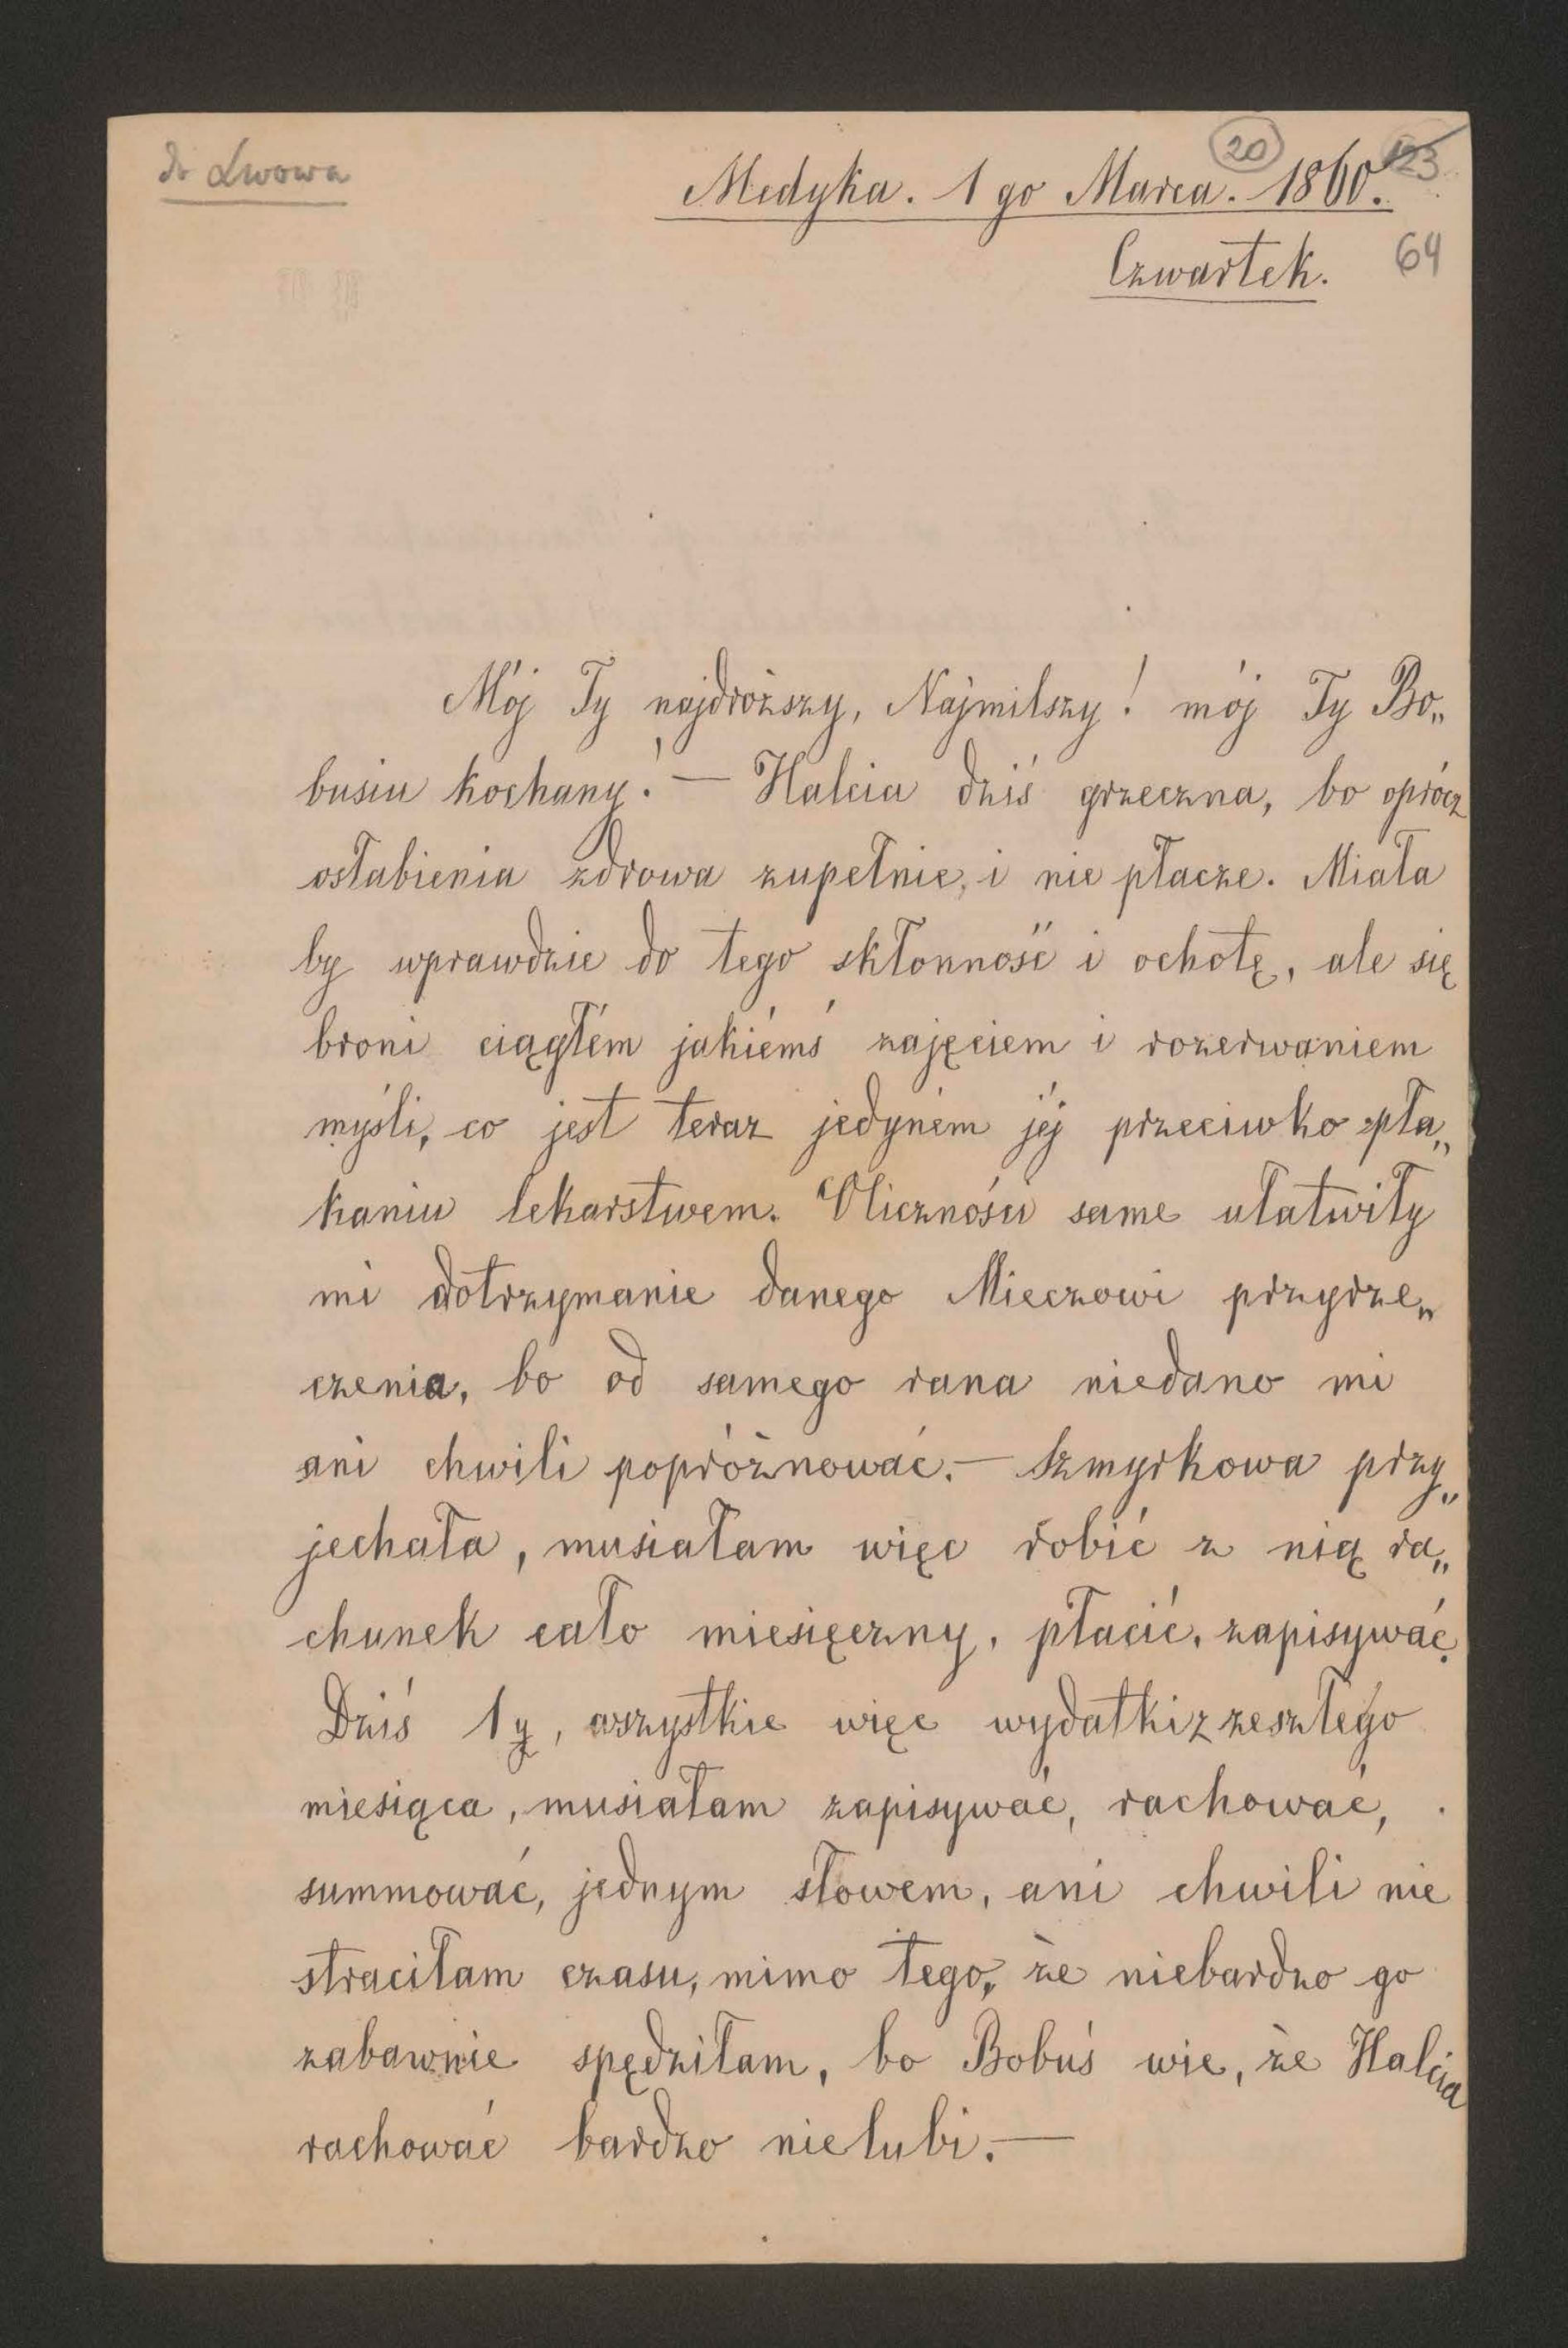 do Lwowa
20 123
Medyka. 1 go Marca. 1860.
Czwartek. 64
Mój Ty najdroższy, Najmilszy! mój Ty Bo„
busiu kochany! — Halcia dziś grzeczna, bo oprócz
osłabienia zdrowa zupełnie, i nie płacze. Miała
by wprawdzie do tego skłonność i ochotę, ale się
broni ciągłém jakiémś zajęciem i rozerwaniem
myśli, co jest teraz jedyném jéj przeciwko pła„
kaniu lekarstwem. Oliczności same ułatwiły
mi dotrzymanie danego Mieczowi przyrze„
czenia, bo od samego rana niedano mi
ani chwili popróżnować. — Szmyrkowa przy„
jechała, musiałam więc robić z nią ra„
chunek cało miesięczny, płacić, zapisywać.
Dziś 1y, wszystkie więc wydatki z zeszłego
miesiąca, musiałam zapisywać, rachować,
summować, jednym słowem, ani chwili nie
straciłam czasu, mimo tego, że niebardzo go
zabawnie spędziłam, bo Bobuś wie, że Halcia
rachować bardzo nie lubi. —